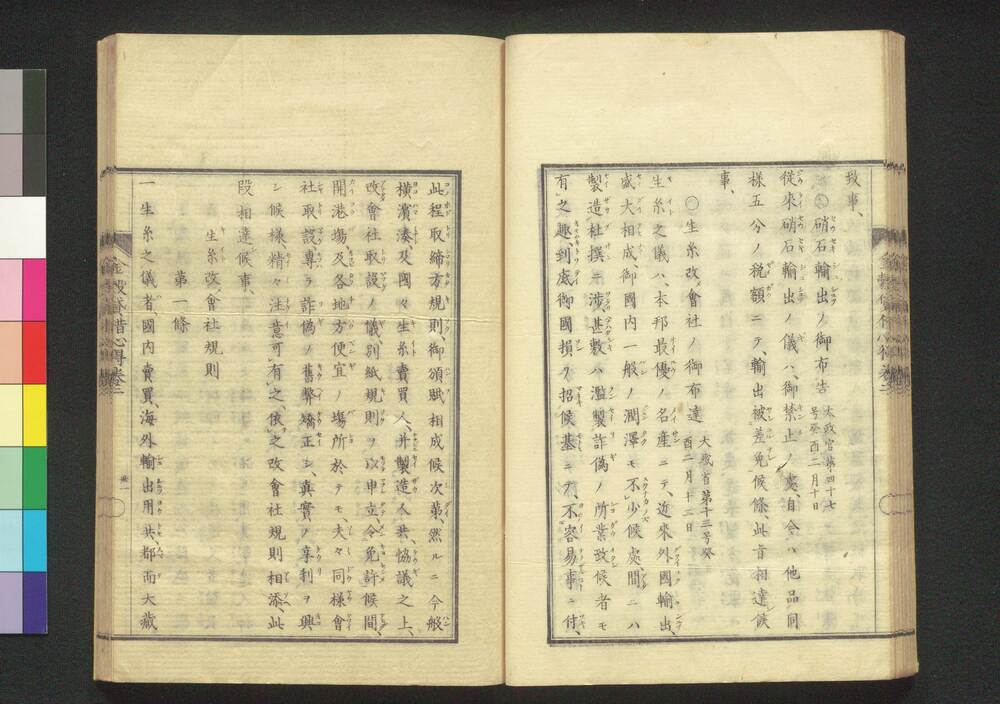 致事、
○硝石輸出ノ御布告 太政官第四十七
号癸酉二月十日
從來硝石輸出ノ儀ハ、御禁止ノ處、自今ハ他品同
樣五分ノ税額ニテ、輸出被差免候條、此旨相達候
事、
○生糸改會社ノ御布達 大蔵省第十三号癸
酉二月十二日
生糸之儀ハ、本邦最優ノ名産ニテ、近來外國輸出、
盛大相成、御國内一般ノ潤澤モ不少候處、間ニハ
製造杜撰ニ渉、甚敷ハ濫製詐偽ノ所業致候者モ
有之趣、到底御國損ヲ招候基ニテ、不容易事ニ付、
此程取締方規則、御頒賦相成候次第、然ルニ今般
横濱湊及國々生糸賣買人、并製造人共、協議之上、
改會社取設ノ儀、別紙規則ヲ以申立令免許候間、
開港塲及各地方便宜ノ塲所於テモ、夫々同様會
社取設、專ラ詐偽ノ舊弊矯正シ、真實ノ享利ヲ興
シ候樣、精々注意可有之、依之改會社規則相添、此
段相達候事、
生糸改會社規則
第一條
一生糸之儀者、國内賣買、海外輸出用共、都而大蔵